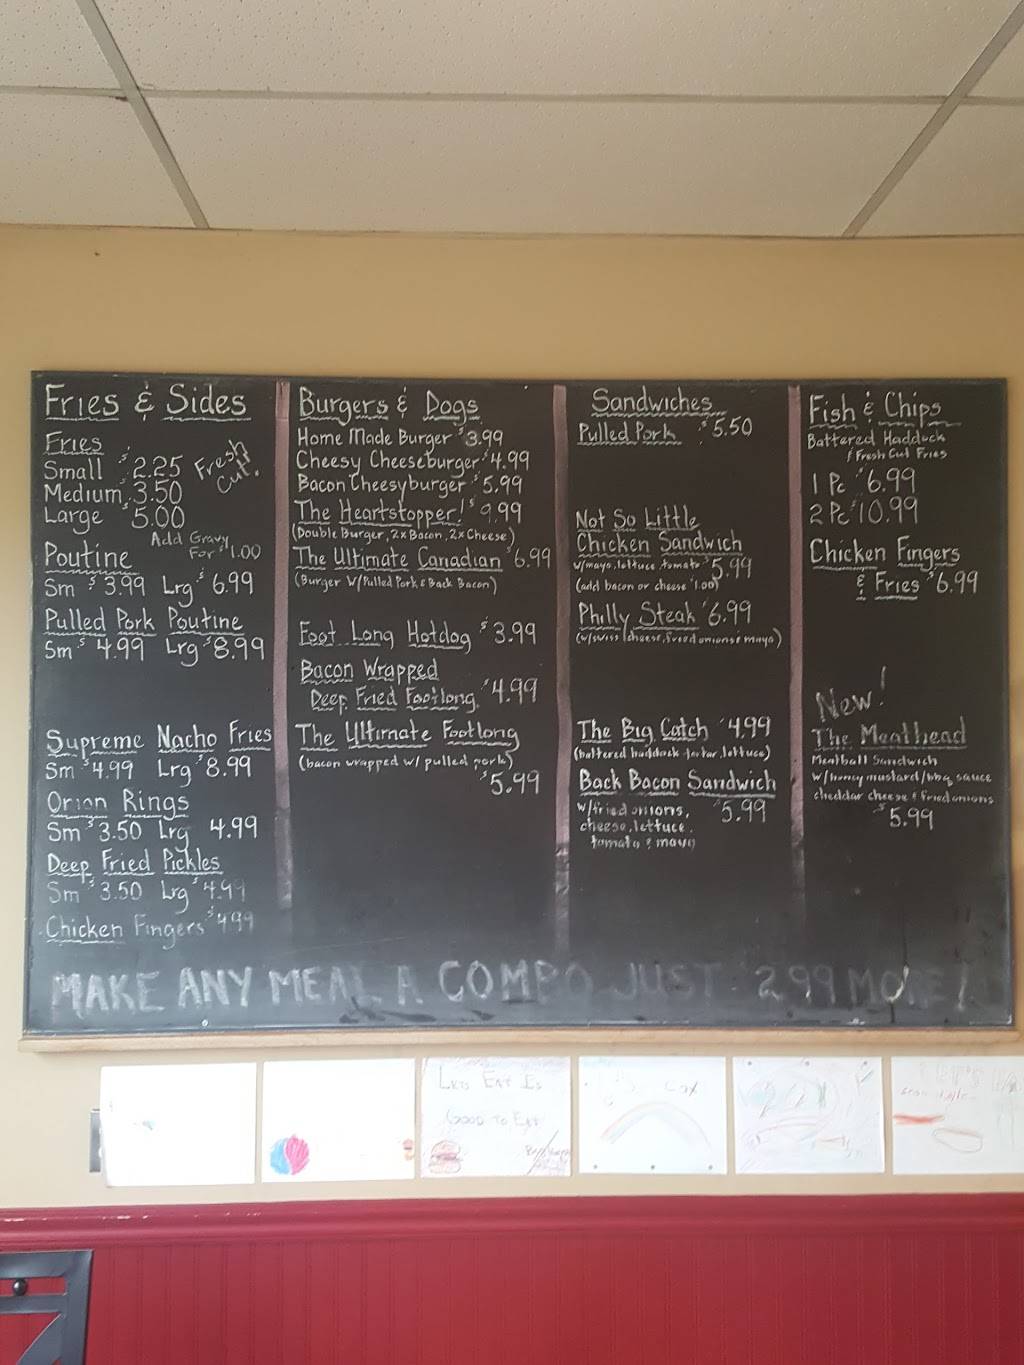 Fries & Sides
Fries
Small $2.25
Medium $3.50
Large $5.00
Fresh
Cut.
Add Gravy
For $1.00
Poutine
Sm $3.99 Lrg $6.99
Pulled Pork Poutine
Sm $4.99 Lrg $8.99
Supreme Nacho Fries
Sm $4.99 Lrg $8.99
Onion Rings
Sm $3.50 Lrg 4.99
Deep Fried Pickles
Sm $3.50 Lrg $4.99
Chicken Fingers $4.99
Burgers & Dogs
Home Made Burger $3.99
Cheesy Cheeseburger $4.99
Bacon Cheesyburger $5.99
The Heartstopper! $9.99
(Double Burger, 2x Bacon, 2x Cheese)
The Ultimate Canadian $6.99
(Burger W/Pulled Pork & Back Bacon)
Foot Long Hotdog $3.99
Bacon Wrapped
Deep Fried Footlong $4.99
The Ultimate Footlong
(bacon wrapped w/ pulled pork)
$5.99
Sandwiches
Pulled Pork $5.50
Not So Little
Chicken Sandwich
w/mayo, lettuce, tomato $5.99
(add bacon or cheese $1.00)
Philly Steak $6.99
(w/swiss cheese, fried onions & mayo)
The Big Catch $4.99
(battered haddock tartar, lettuce)
Back Bacon Sandwich
w/fried onions, $5.99
cheese, lettuce,
tomato & mayo
Fish & Chips
Battered Haddock
& Fresh Cut Fries
1 Pc $6.99
2 Pc $10.99
Chicken Fingers
& Fries $6.99
New!
The Meathead
Meatball Sandwich
w/honey mustard/bbq sauce
cheddar cheese & fried onions
$5.99
MAKE ANY MEAL A COMBO JUST 2.99 MORE!
Lets Eat Is
Good to Eat